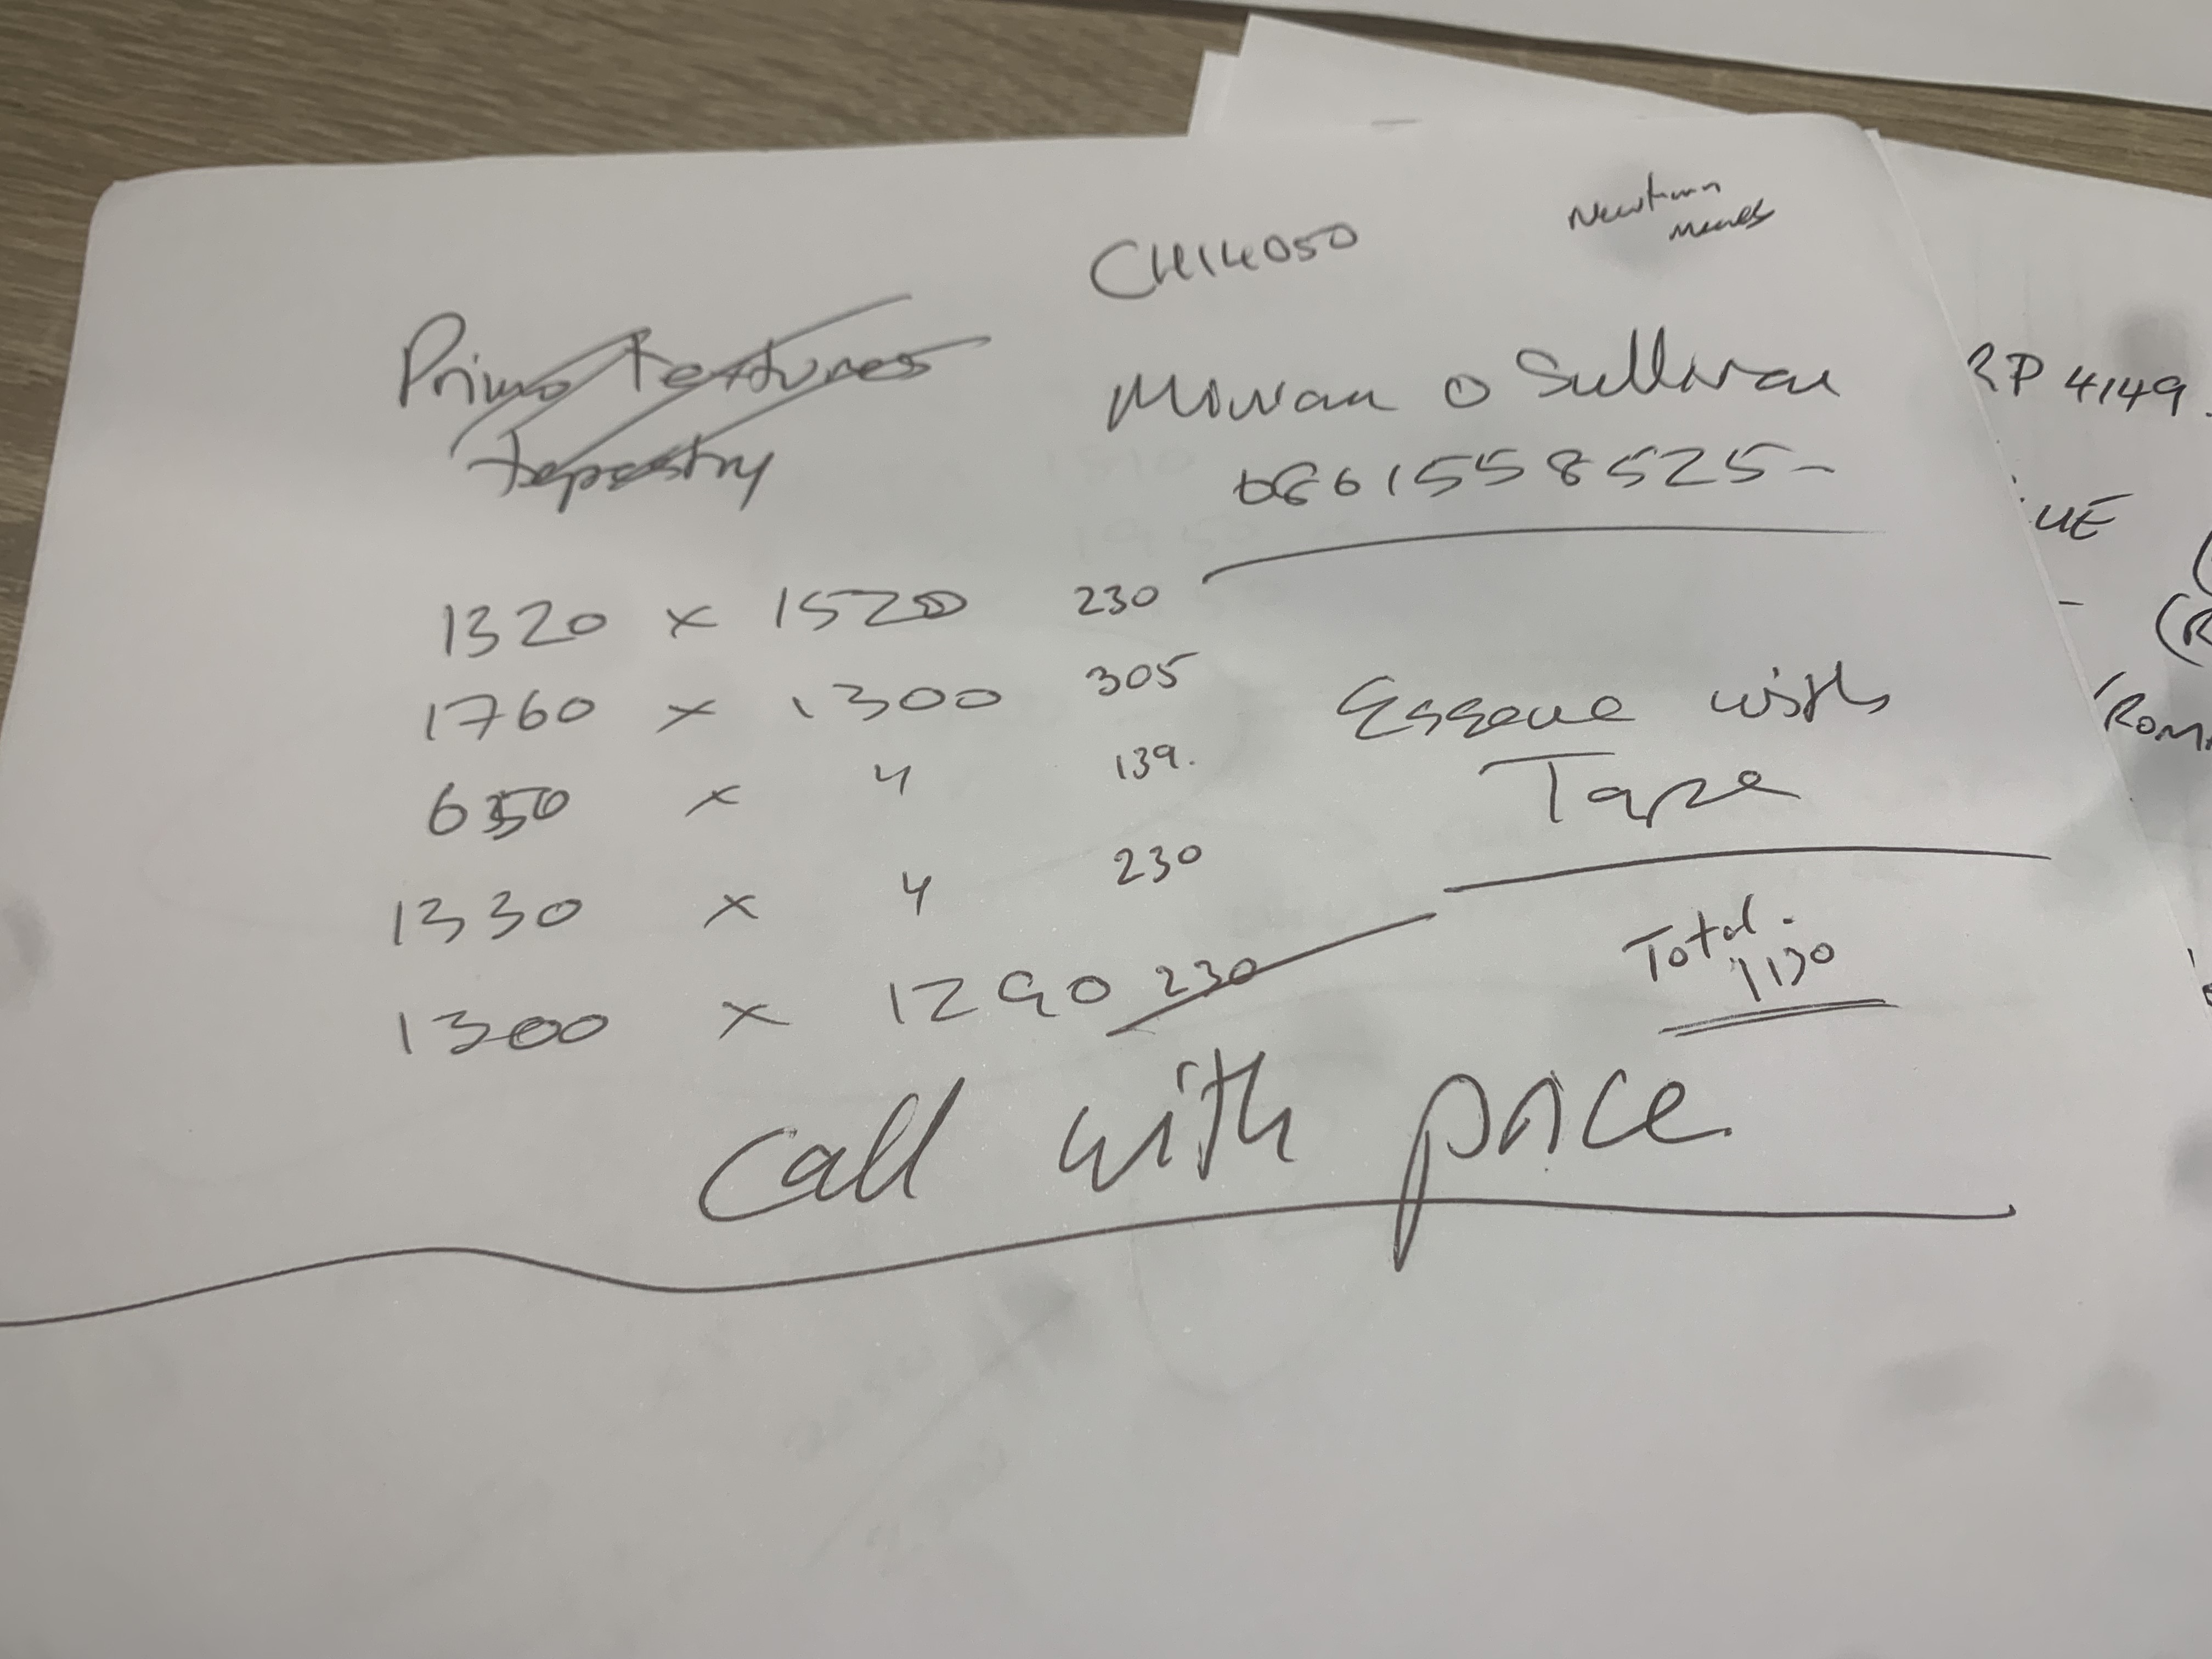 CH14050
Newtown
Prima Textures
tapestry
O Sullivan
0861558525-
1320 x 1520 230
1760 x 1300 305
6350 x 4 139.
1330 x 4 230
1300 x 1290 230
with
Tape
Total.
1130
Call with price
RP 4149.
UE
-
(R
(ROM